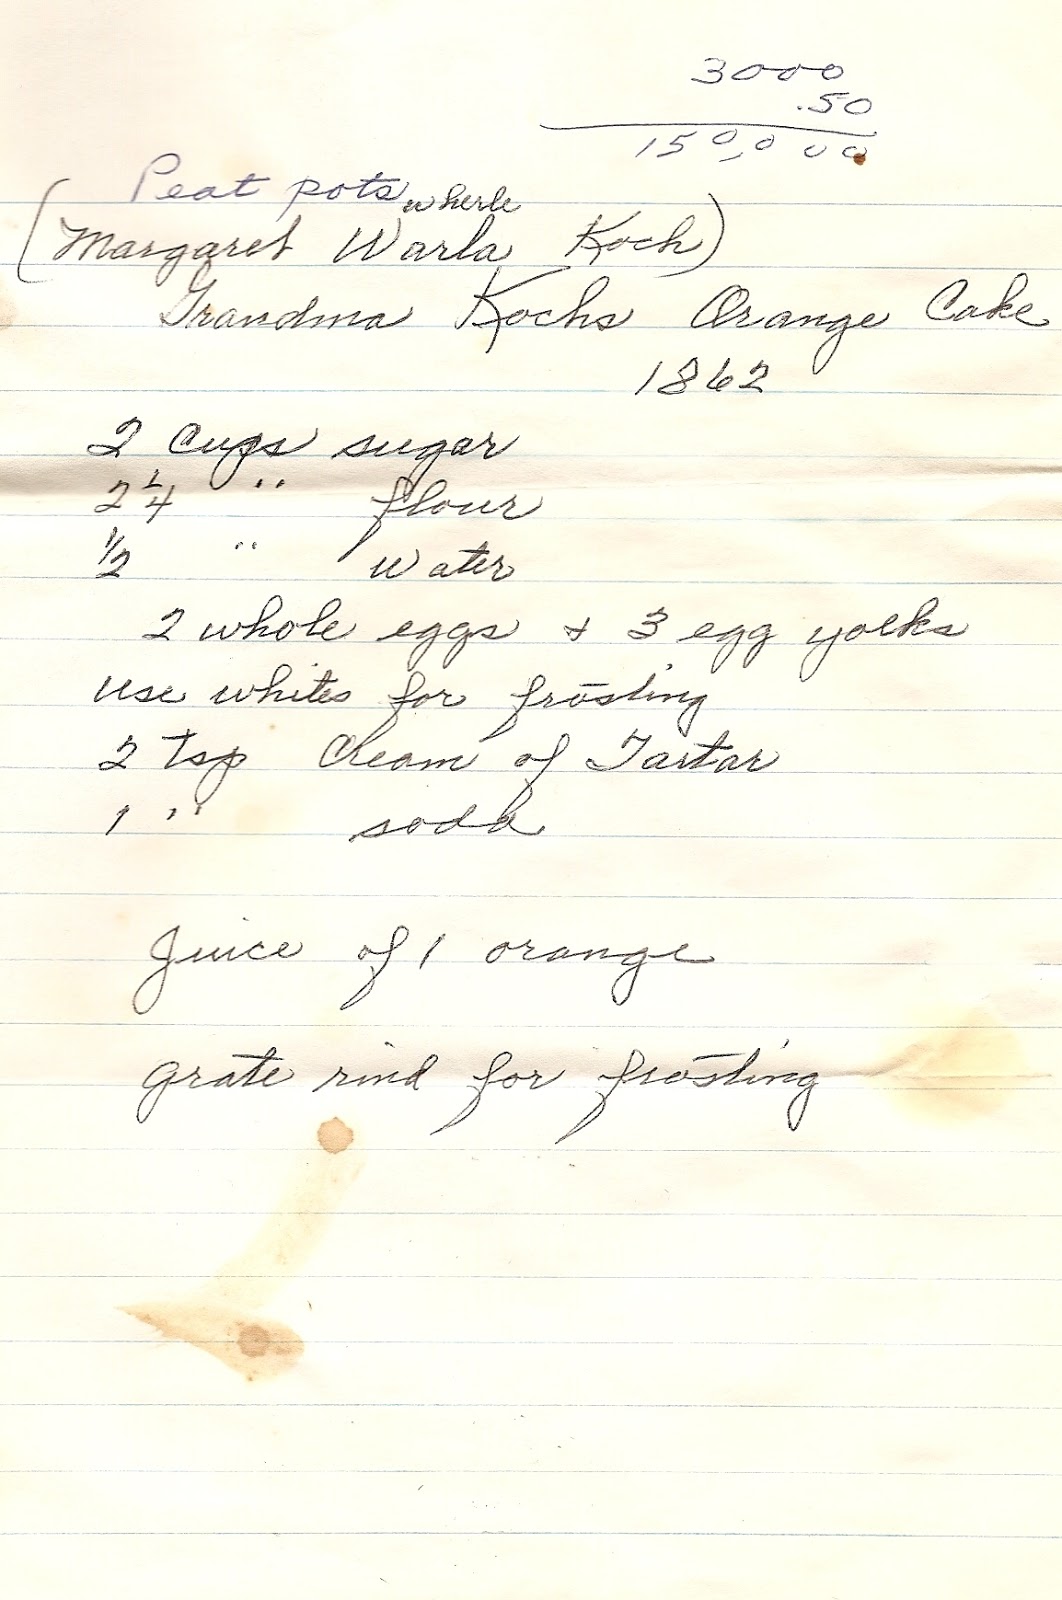 3000
.50
150,000
Peat pots wherle
(Margaret Warla Koch)
Grandma Kochs Orange Cake
1862
2 Cups sugar
2 1/4 " flour
1/2 " water
2 whole eggs & 3 egg yolks
use whites for frosting
2 Tsp Cream of Tartar
1 " soda
Juice of 1 orange
grate rind for frosting